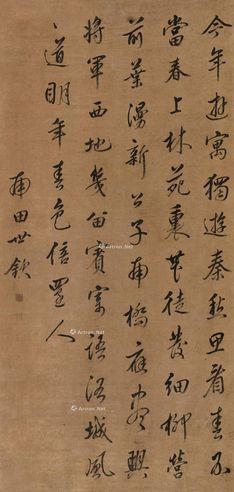 今年遊寓獨遊秦愁思看春不
當春上林苑裏花徒發細柳營
前葉漫新公子南橋應盡興
將軍西地幾留賓寄語洛城風
道明年春色倍還人
南田世欽
Artron.Net